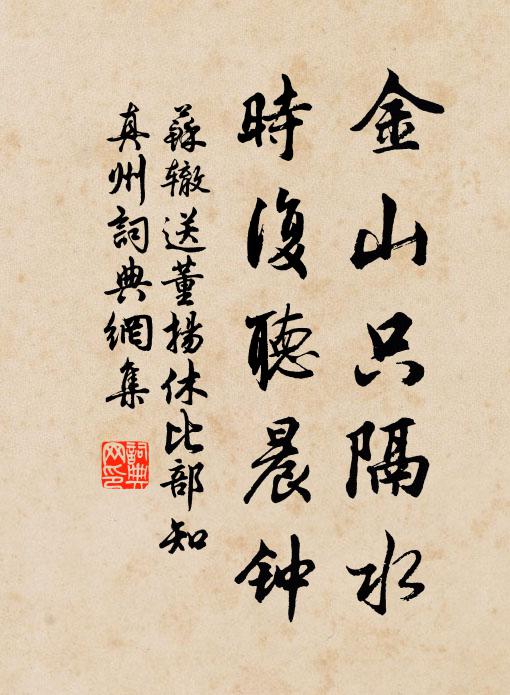 金山只隔水
時復聽晨钟
蘇轍送董揚休比部知
真州詞典網集
詞典
网印